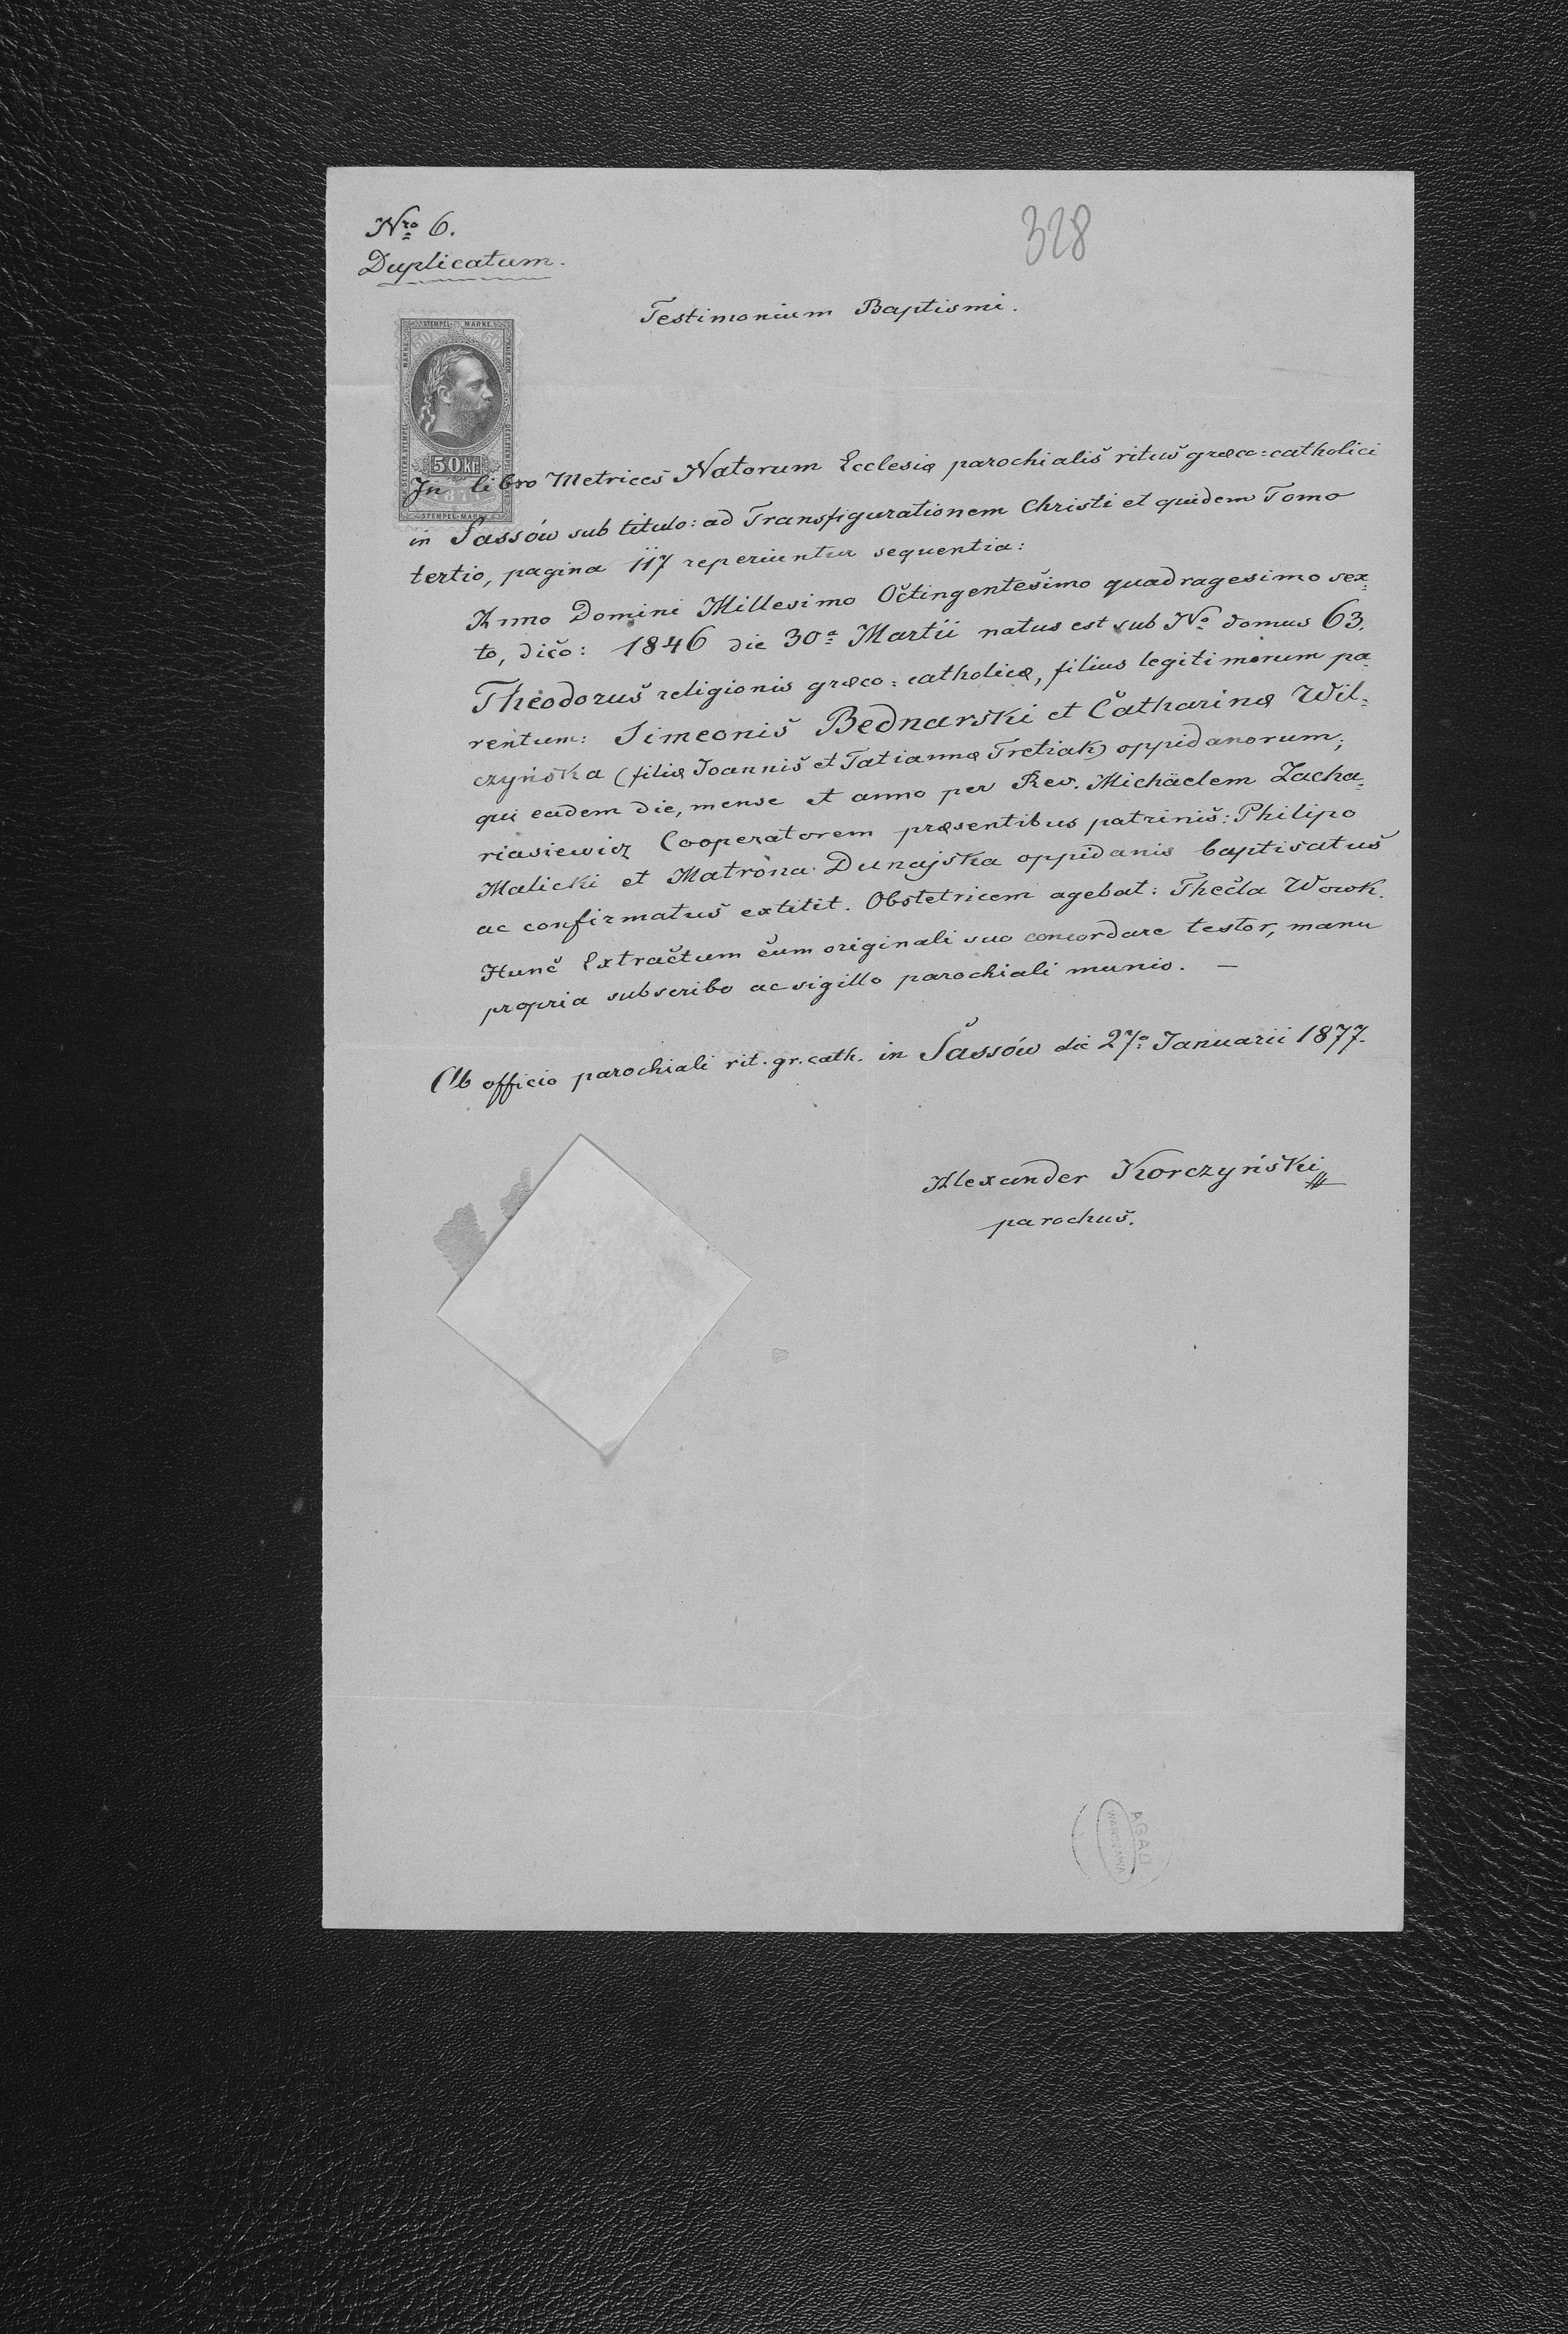 Nro 6.
328
Duplicatum.
Testimonium Baptismi.
STEMPEL MARKE
50 Kr
STEMPEL-MARKE
In libro Metrices Natorum Ecclesiæ parochiališ rituš græco=catholici
in Sassów sub titulo: ad Transfigurationem Christi et quidem Tomo
tertio, pagina 117 reperiuntur sequentia:
Anno Domini Millesimo Očtingentešimo quadragesimo sex=
to, dičo: 1846 die 30a Martii natus est sub No domus 63.
Theodoruš religionis græco=catholicæ, filius legitimorum pa=
rentum: Simeoniš Bednarski et Čatharinæ Wil=
czyńska (filiæ Joanniš et Tatiannæ Tretiak) oppidanorum;
qui eadem die, mense et anno per Rev. Michäelem Zacha=
riasiewicz Cooperatorem præsentibus patriniš: Philipo
Malicki et Matrona Dunajska oppidanis baptisatuš
ac confirmatuš extitit. Obstetricem agebat: Thečla Wowk.
Hunč Extračtum čum originali suo concordare testor, manu
propria subscribo ac sigillo parochiali munio. —
Ab officio parochiali rit. gr. cath. in Šassów die 27a Januarii 1877.
Alexander Korczyński
parochuš.
AGAD
WARSZAWA